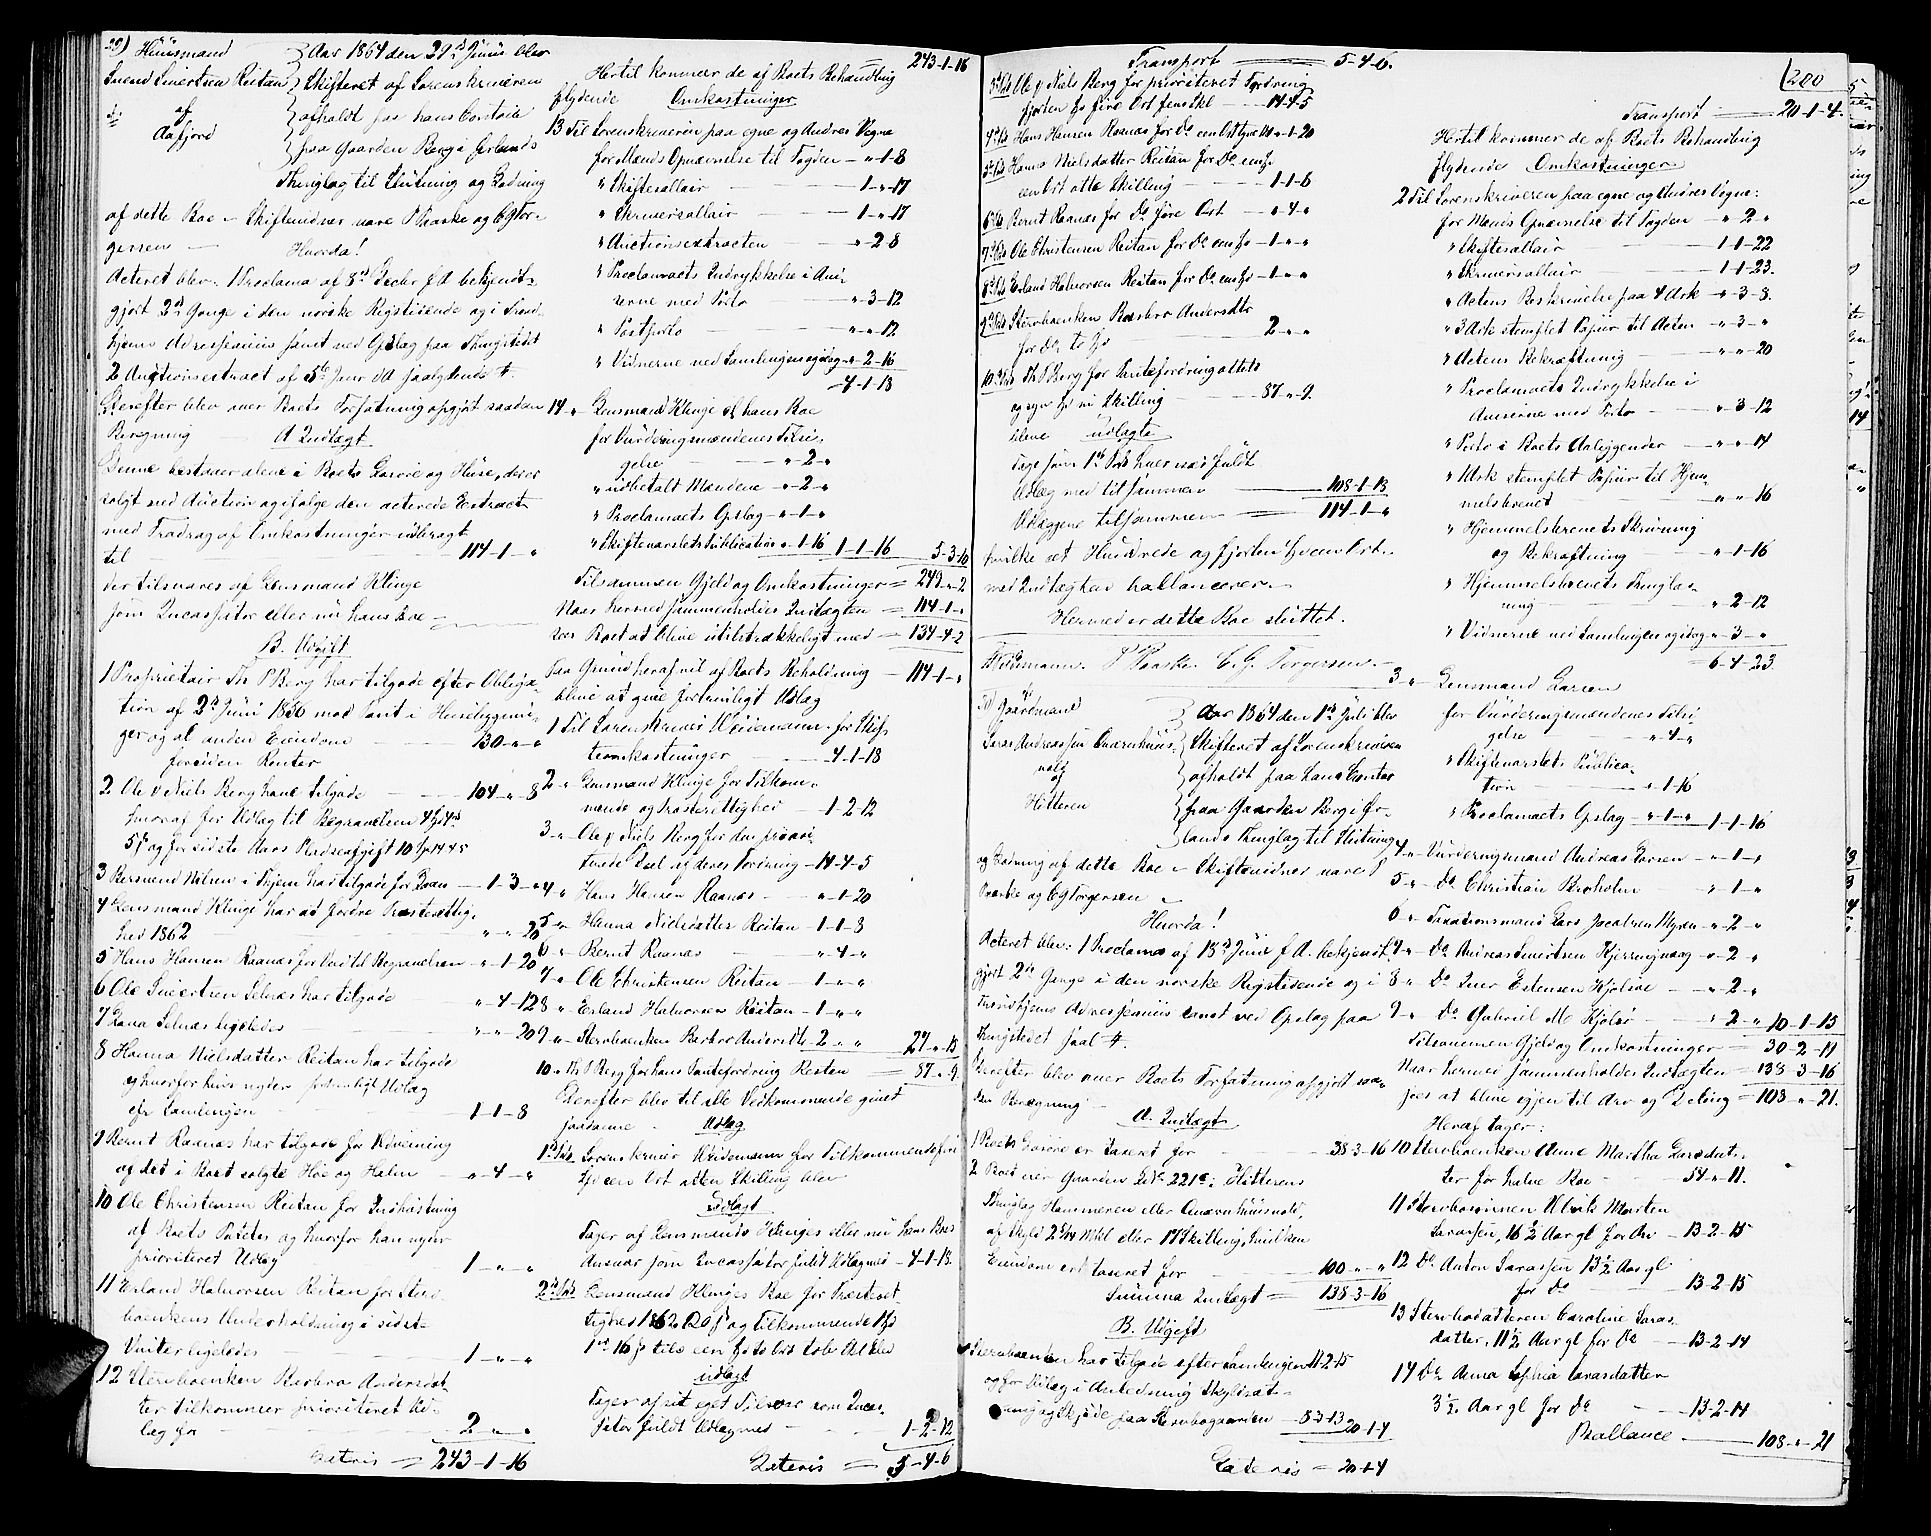 39) Huusmand
Svend Sivertsen Reitan
af
Aafjord
Aar 1864 den 29de Junii blev
Skifteret af Sorenskriveren
afholdt paa hans Contoir
paa Gaarden Berg i Ørlands
Thinglag til Slutning og Lodning
af dette Boe – Skiftevidner vare P Baaske og CG Tor-
gersen – Hvorda!
Acteret blev: 1 Proclama af 8de Decbr f A bekjendt-
gjort 2de Gange i den norske Rigstidende og i Trond-
hjems Adresseavis samt ved Opslag paa Thingstedet
2 Auctionsextract af 5te Janr dA saalydende #.
Derefter blev over Boets Forfatning opgjort saadan
Beregning A Indtægt
Denne bestaaer alene i Boets Løsøre og Huse, der er
solgt ved Auction og ifølge den acterede Extract
med Fradrag af Omkostninger udbragt
til 114-1-"
der tilsvares af Lensmand Klinge
som Incassator eller nu hans Boe –
B. Udgift
1 Proprietair Th P Berg har tilgode efter Obliga-
tion af 2de Juni 1856 med Pant i Huusebygnin-
ger og al anden Eiendom 130-"-"
foruden Renter
2 Ole & Niels Berg have tilgode 104-"-8
hvoraf for Udlæg til Begravelsen 4 Spd 4 ort
5 ß og for sidste Aars Pladseafgift 10 Sp 14 4 5
3 Bersvend Nilsen i Skjem har tilgode for 1-3-"
4 Lensmand Klinge har at fordre Præsterettig-
hed 1862 "-"-20
5 Hans Hansen Raanæs for Ved til Begravelsen "-1-20
6 Ole Sivertsen Selnæs har tilgode "-4-12
7 Lana Selnæs ligeledes "-"-20
8 Hanna Nielsdatter Reitan har tilgode
og hvorfor hun nyder fortrinligt Udlæg
efr Samlingen 1-1-8
9 Bernt Raanæs har tilgode for Kjøring
af det i Boet solgte Høe og Halm "-4-"
10 Ole Christensen Reitan for Indhøstning
af Boets Poteter og hvorfor han nyder
prioriteret Udlæg 1-"-"
11 Erland Halvorsen Reitan for Sterv-
boenkens Underholdning i sidst-
Vinter ligeledes 1-"-"
12 Stervboenken Berbro Andersdat-
ter tilkommer prioriteret Ud-
læg for 2-"-"
Lateris = 243-1-16
243-1-16
Hertil kommer de af Boets Behandling
flydende Omkostninger
13 Til Sorenskriveren paa egne og Andres Vegne
for Mænds Opnævnelse til Fogden – "-1-8
" Skiftesallair 1-"-17
" Skriversallair 1-"-17
" Auctionsextracten "-2-8
" Proclamaets Indrykkelse i Avi-
serne med Porto "-3-12
" Postporto "-"-12
" Vidnerne ved Samlingen og idag "-2-16
4-1-18
14 " Lensmand Klinge el hans Boe
for Vurderingsmændenes Tilsi-
gelse "-2-"
" udbetalt Mændene "-2-"
" Proclamaets Opslag "-1-"
" Skiftevarslets Publication "-1-16 1-1-16 5-3-10
Tilsammen Gjeld og Omkostninger = 248-"-2
Naar hermed sammenholdes Indtægten = 114-1-"
sees Boet at blive utilstrækkeligt med 134-4-2
Paa Grund heraf vil af Boets Beholdning 114-1-"
blive at give fortrinligt Udlæg
1 Til Sorenskriver Heidemann for Skif-
teomkostninger 4-1-18
2 " Lensmand Klinge for Tilkom-
mende og Præsterettighed 1-2-12
3 " Ole & Niels Berg for den priori-
terede Deel af deres Fordring 14-4-5
4 " Hans Hansen Raanæs "-1-20
5 " Hanna Nielsdatter Reitan 1-1-8
6 " Bernt Raanæs "-4-"
7 " Ole Christensen Reitan 1-"-"
8 " Erland Halvorsen Reitan 1-"-"
9 " Stervboenken Berbro Andersdtr 2-"-" 27-"-15
10 " Th P Berg for hans Pantefordring Resten 87-"-9
Derefter blev til alle Vedkommende givet
saadanne Udlæg
1ste Post Sorenskriver Heidemann for Tilkommende fire
Spd een Ort atten Skilling blev
Udlagt
Tager af Lensmand Klinges eller nu hans Boes
Ansvar som Incassator fuldt Udlæg med 4-1-18
2den Post Lensmand Klinges Boe for Præsteret-
tighed 1862 20 ß og tilkommende 1 Spd
1 ort 16 ß tils een Spd to Ort tolv ß blev
udlagt
Tager af sit eget Tilsvar som Incas-
sator fuldt Udlæg med 1-2-12
Lateris = 5-4-6
Transport = 5-4-6.
3die Post Ole & Niels Berg for prioriteret Fordring
fjorten Sp fire Ort fem Skl 14-4-5
4de Post Hans Hansen Raanæs for Do een Ort tyve "-1-20
5te Post Hanna Nielsdatter Reitan for Do een Sp
een Ort otte Skilling 1-1-8
6te Post Bernt Raanæs for Do fire Ort "-4-"
7de Post Ole Christensen Reitan for Do een Sp 1-"-"
8de Post Erland Halvorsen Reitan for Do een Sp 1-"-"
9de Post Stervboenken Berbro Andersdtr
for Do to Sp 2-"-"
10de Post Th P Berg for Pantefordring otteti
og syv Sp ni Skilling 87-"-9
bleve udlagte
Tage som 1ste Post hver især fuldt
Udlæg med tilsammen 108-1-18
Udlæggene tilsammen = 114-1-"
hvilke eet Hundrede og fjorten Sp een Ort
med Indtægten ballancerer –
Hermed er dette Boe sluttet.
Heidemann. P Baaske C. G. Torgersen –
40) Gaardmand
Lars Andreassen Qværnhuus-
vold
af
Hitteren
Aar 1864 den 1ste Juli blev
Skifteret af Sorenskriveren
afholdt paa hans Contor
paa Gaarden Berg i Ør-
lands Thinglag til Slutning
og Lodning af dette Boe – Skiftevidner vare P
Baaske og CG Torgersen –
Hvorda!
Acteret blev: 1 Proclama af 18de Junii f A. bekjendt-
gjort 2de Gange i den norske Rigstidende og i
Trondhjems Adresseavis samt ved Opslag paa
Thingstedet saal #.
Derefter blev over Boets Forfatning opgjort saa-
dan Beregning – A. Indtægt
1 Boets Løsøre er taxeret for 38-3-16
2 Boet eier Gaarden L No 221c i Hitterens
Thinglag Hammeren eller Qværnhuusvold,
af Skyld 2 5/24 Mkl eller 17 Skilling, hvilken
Eiendom est taxeret for 100-"-"
Summa Indtægt = 138-3-16
B. Udgift
1 Stervboenken har tilgode efter Samlingen 11-2-15
og for Udlæg i Anledning Skyldsæt-
ning og Skjøde paa Stervbogaarden 8-3-13 20-1-4
Lateris = 20-1-4
200
Transport 20-1-4.
Hertil kommer de af Boets Behandling
flydende Omkostninger
2 Til Sorenskriveren paa egne og Andres Vegne:
for Mænds Opnævnelse til Fogden "-2-"
" Skiftesallair 1-1-22
" Skriversallair 1-1-23.
" Actens Beskrivelse paa 4 Ark "-3-8.
" 3 Ark stemplet Papiir til Acten "-3-"
" Actens Bekræftning "-"-20
" Proclamaets Indrykkelse i
Aviserne med Porto "-3-12
" Porto i Boets Anliggender "-"-14
" Ark stemplet Papiir til Hjem-
melsbrevet "-"-16
" Hjemmelsbrevets Skrivning
og Bekræftning "-1-16
" Hjemmelsbrevets Tinglæs-
ning "-2-12
" Vidnerne ved Samlingen og idag "-3-"
6-4-23
3 " Lensmand Larsen
for Vurderingsmændenes Tilsi-
gelse "-4-"
" Skiftevarslets Publica-
tion "-1-16
" Proclamaets Opslag "-1-" 1-1-16
4 " Vurderingsmand Andreas Larsen "-1-"
5 " Do Christian Broholm "-1-"
6 " Taxationsmand Lars Jacobsen Myren "-2-"
7 " Do Andreas Sivertsen Hjerringvaag "-2-"
8 " Do Iver Estensen Kjølsø "-2-"
9 " Do Gabriel M Kjølsø "-2-" 10-1-15
Tilsammen Gjeld og Omkostninger = 30-2-19
Naar hermed sammenholdes Indtægten = 138-3-16
sees at blive igjen til Arv og Deling = 108-"-21.
Heraf tager:
10 Stervboenken Anne Martha Larsdat-
ter for halve Boe 54-"-11.
11 Stervbosønnen Ulrik Morten
Larssen, 16 1/2 Aar gl for Arv 13-2-15
12 Do Anton Larssen 13 1/2 Aar gl
for Do 13-2-15
13 Stervbodatteren Caroline Lars-
datter, 11 1/2 Aar gl for Do 13-2-14
14 Do Anna Sophia Larsdatter
3 1/2 Aar gl for Do 13-2-14
Ballance 108-"-21